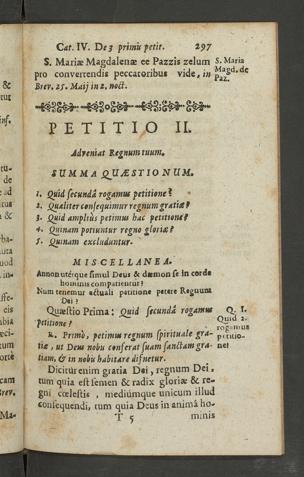 Cat. IV. De 3 primis petit. 297
S. Mariæ Magdalenæ ee Pazzis zelum
pro convertendis peccatoribus vide, in
Brev. 25. Maij in 2. noct.
S. Maria
Magd. de
Paz.
PETITIO II.
Adveniat Regnum tuum.
SUMMA QUÆSTIONUM.
1. Quid secundâ rogamus petitione?
2. Qualiter consequimur regnum gratiæ?
3. Quid ampliùs petimus hac petitione?
4. Quinam potiuntur regno gloriæ?
5. Quinam excluduntur.
MISCELLANEA.
Annon utérque simul Deus & dæmon se in corde
hominis compatiuntur?
Num tenemur actuali petitione petere Regnum
Dei?
Quæstio Prima: Quid secundâ rogamus
petitione?
Q. I.
Quid 2.
rogamus
petitio-
ne?
R. Primò, petimus regnum spirituale gra-
tiæ, ut Deus nobis conferat suam sanctam gra-
tiam, & in nobis habitare dignetur.
Dicitur enim gratia Dei, regnum Dei,
tum quia est semen & radix gloriæ & re-
gni cœlestis, mediúmque unicum illud
consequendi, tum quia Deus in animâ ho-
T 5 minis